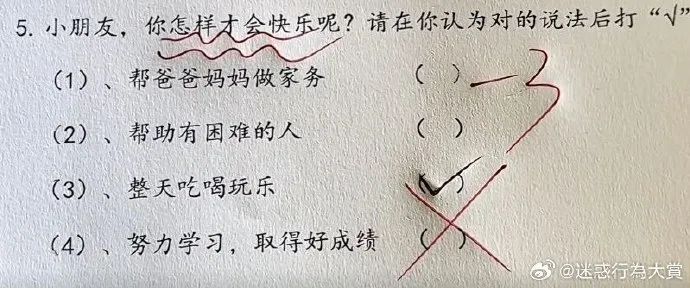 5. 小朋友，你怎样才会快乐呢？请在你认为对的说法后打“√”
（1）、帮爸爸妈妈做家务 （ ） —3
（2）、帮助有困难的人 （ ）
（3）、整天吃喝玩乐 （√）
（4）、努力学习，取得好成绩 （ ）
@迷惑行為大賞